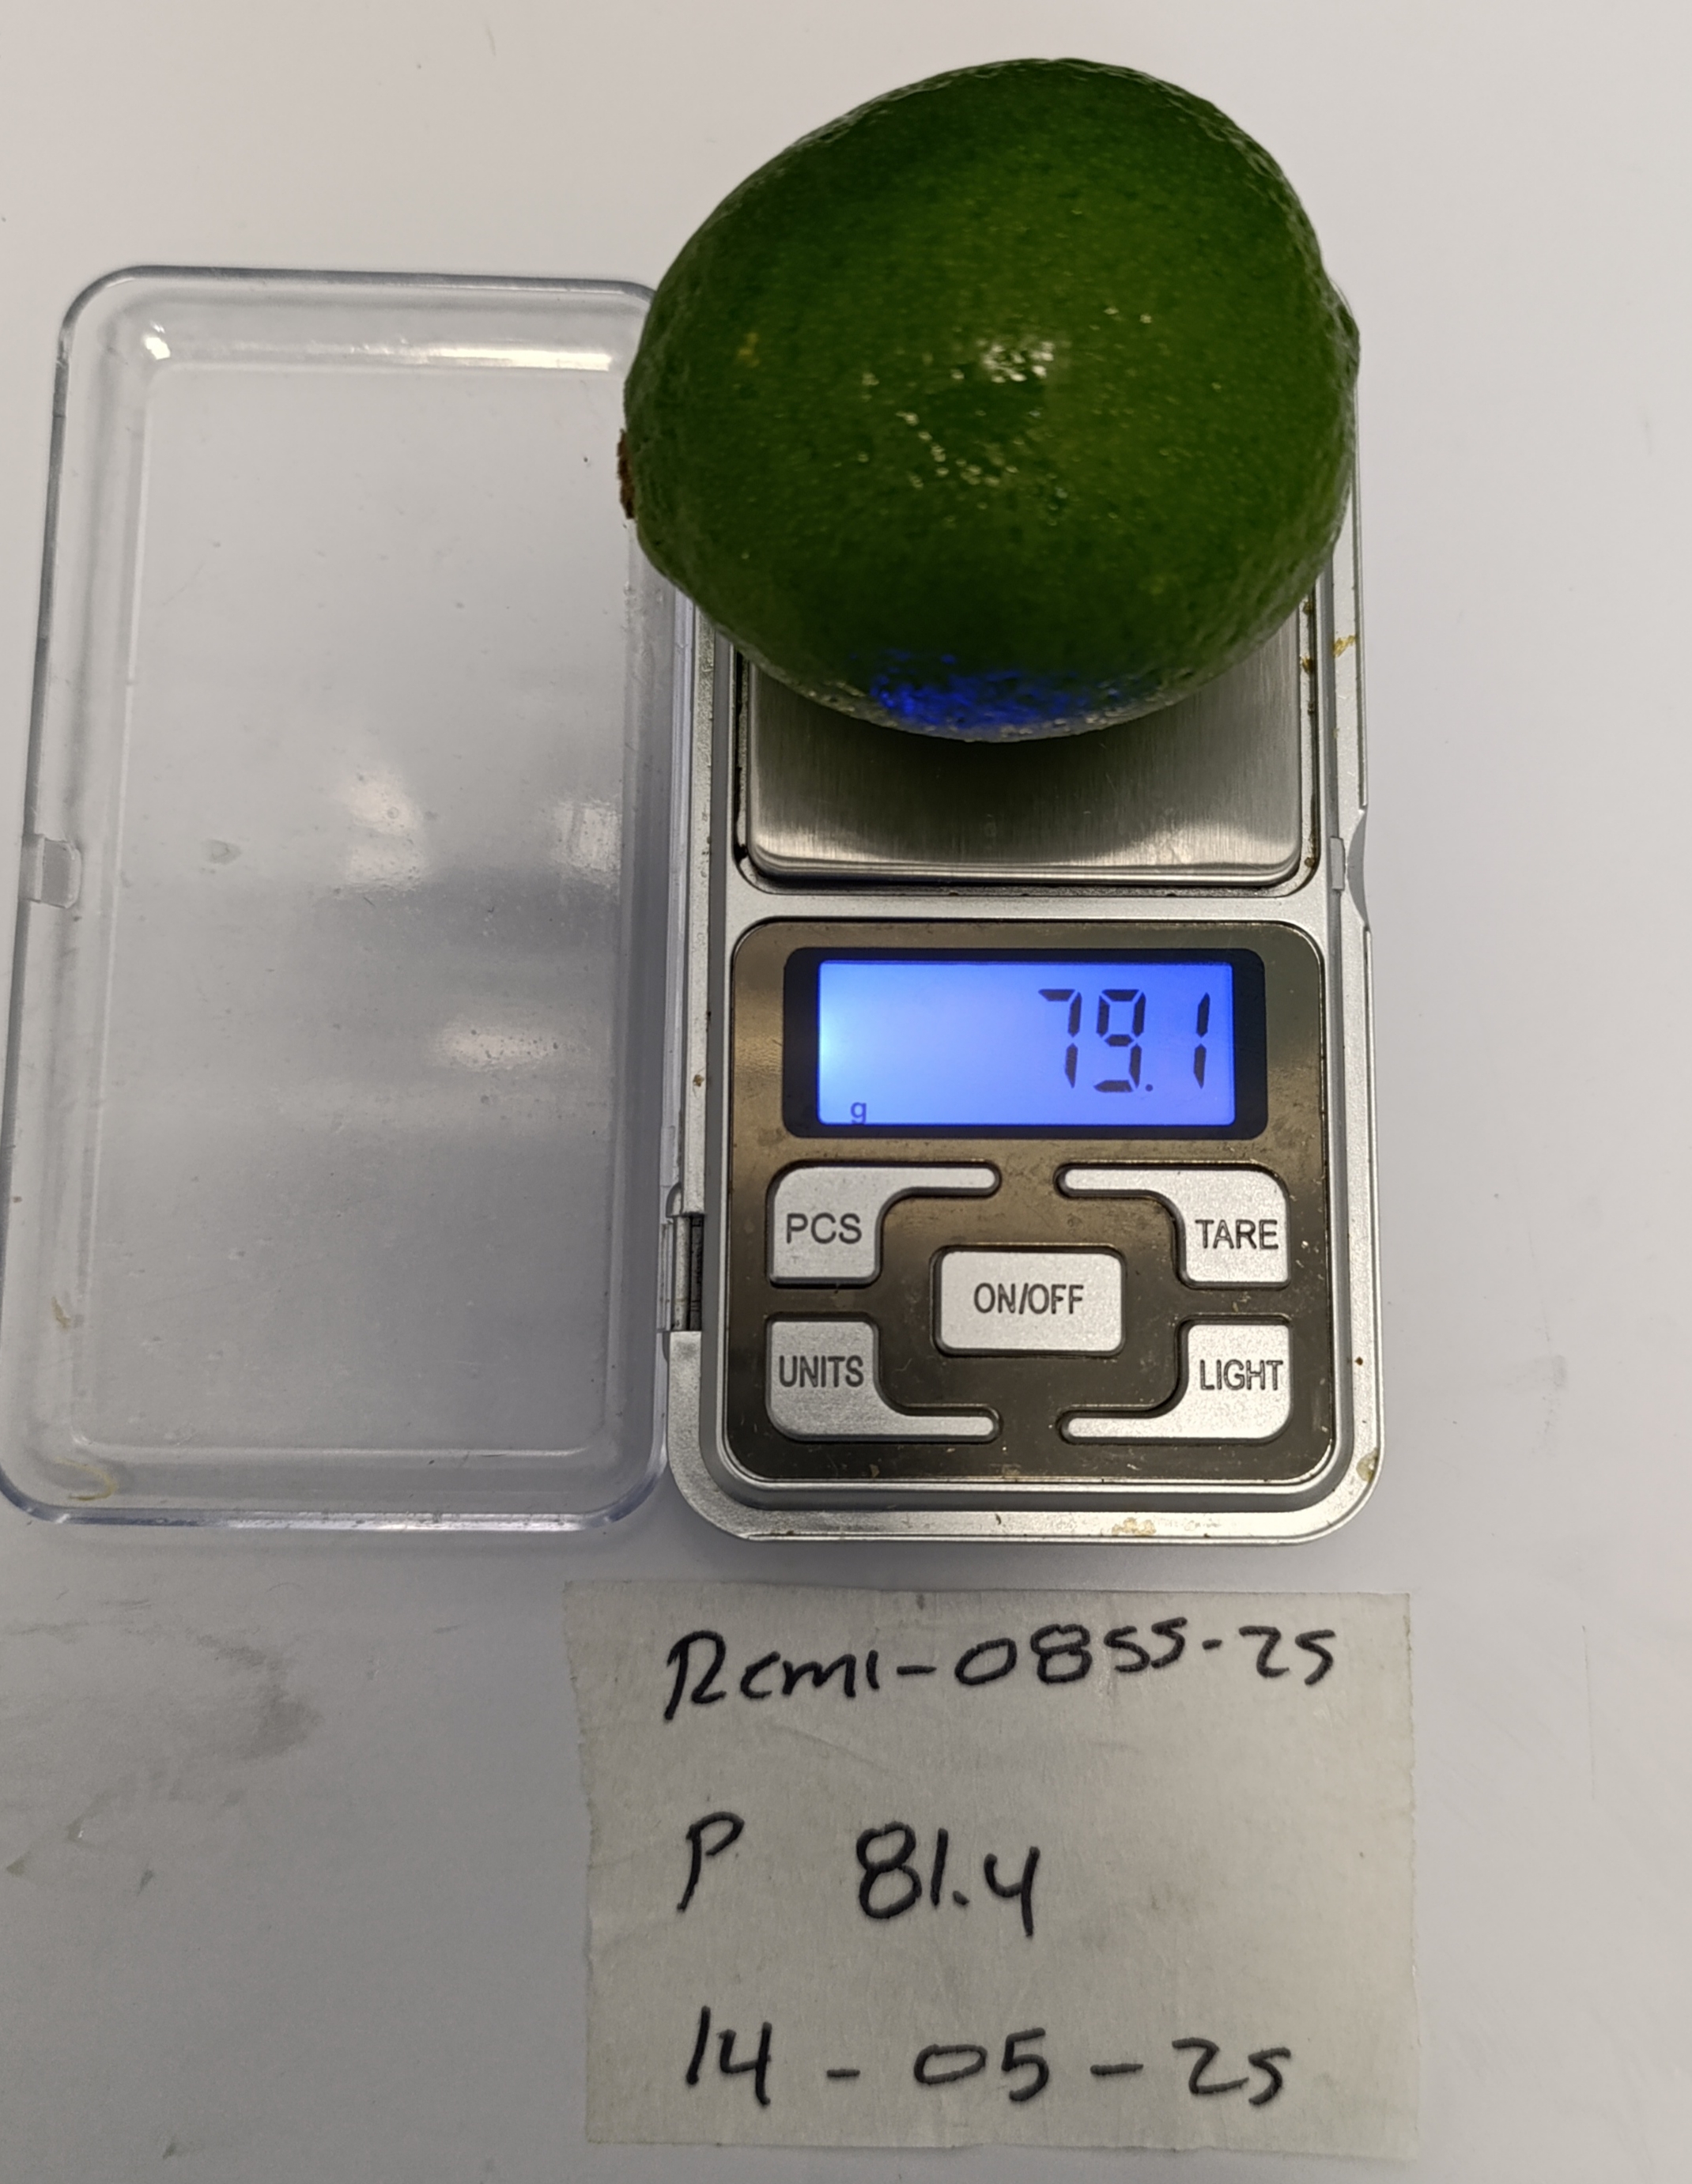 79.1
g
PCS
TARE
ON/OFF
UNITS
LIGHT
Rcmi-0855-25
P 81.4
14-05-25